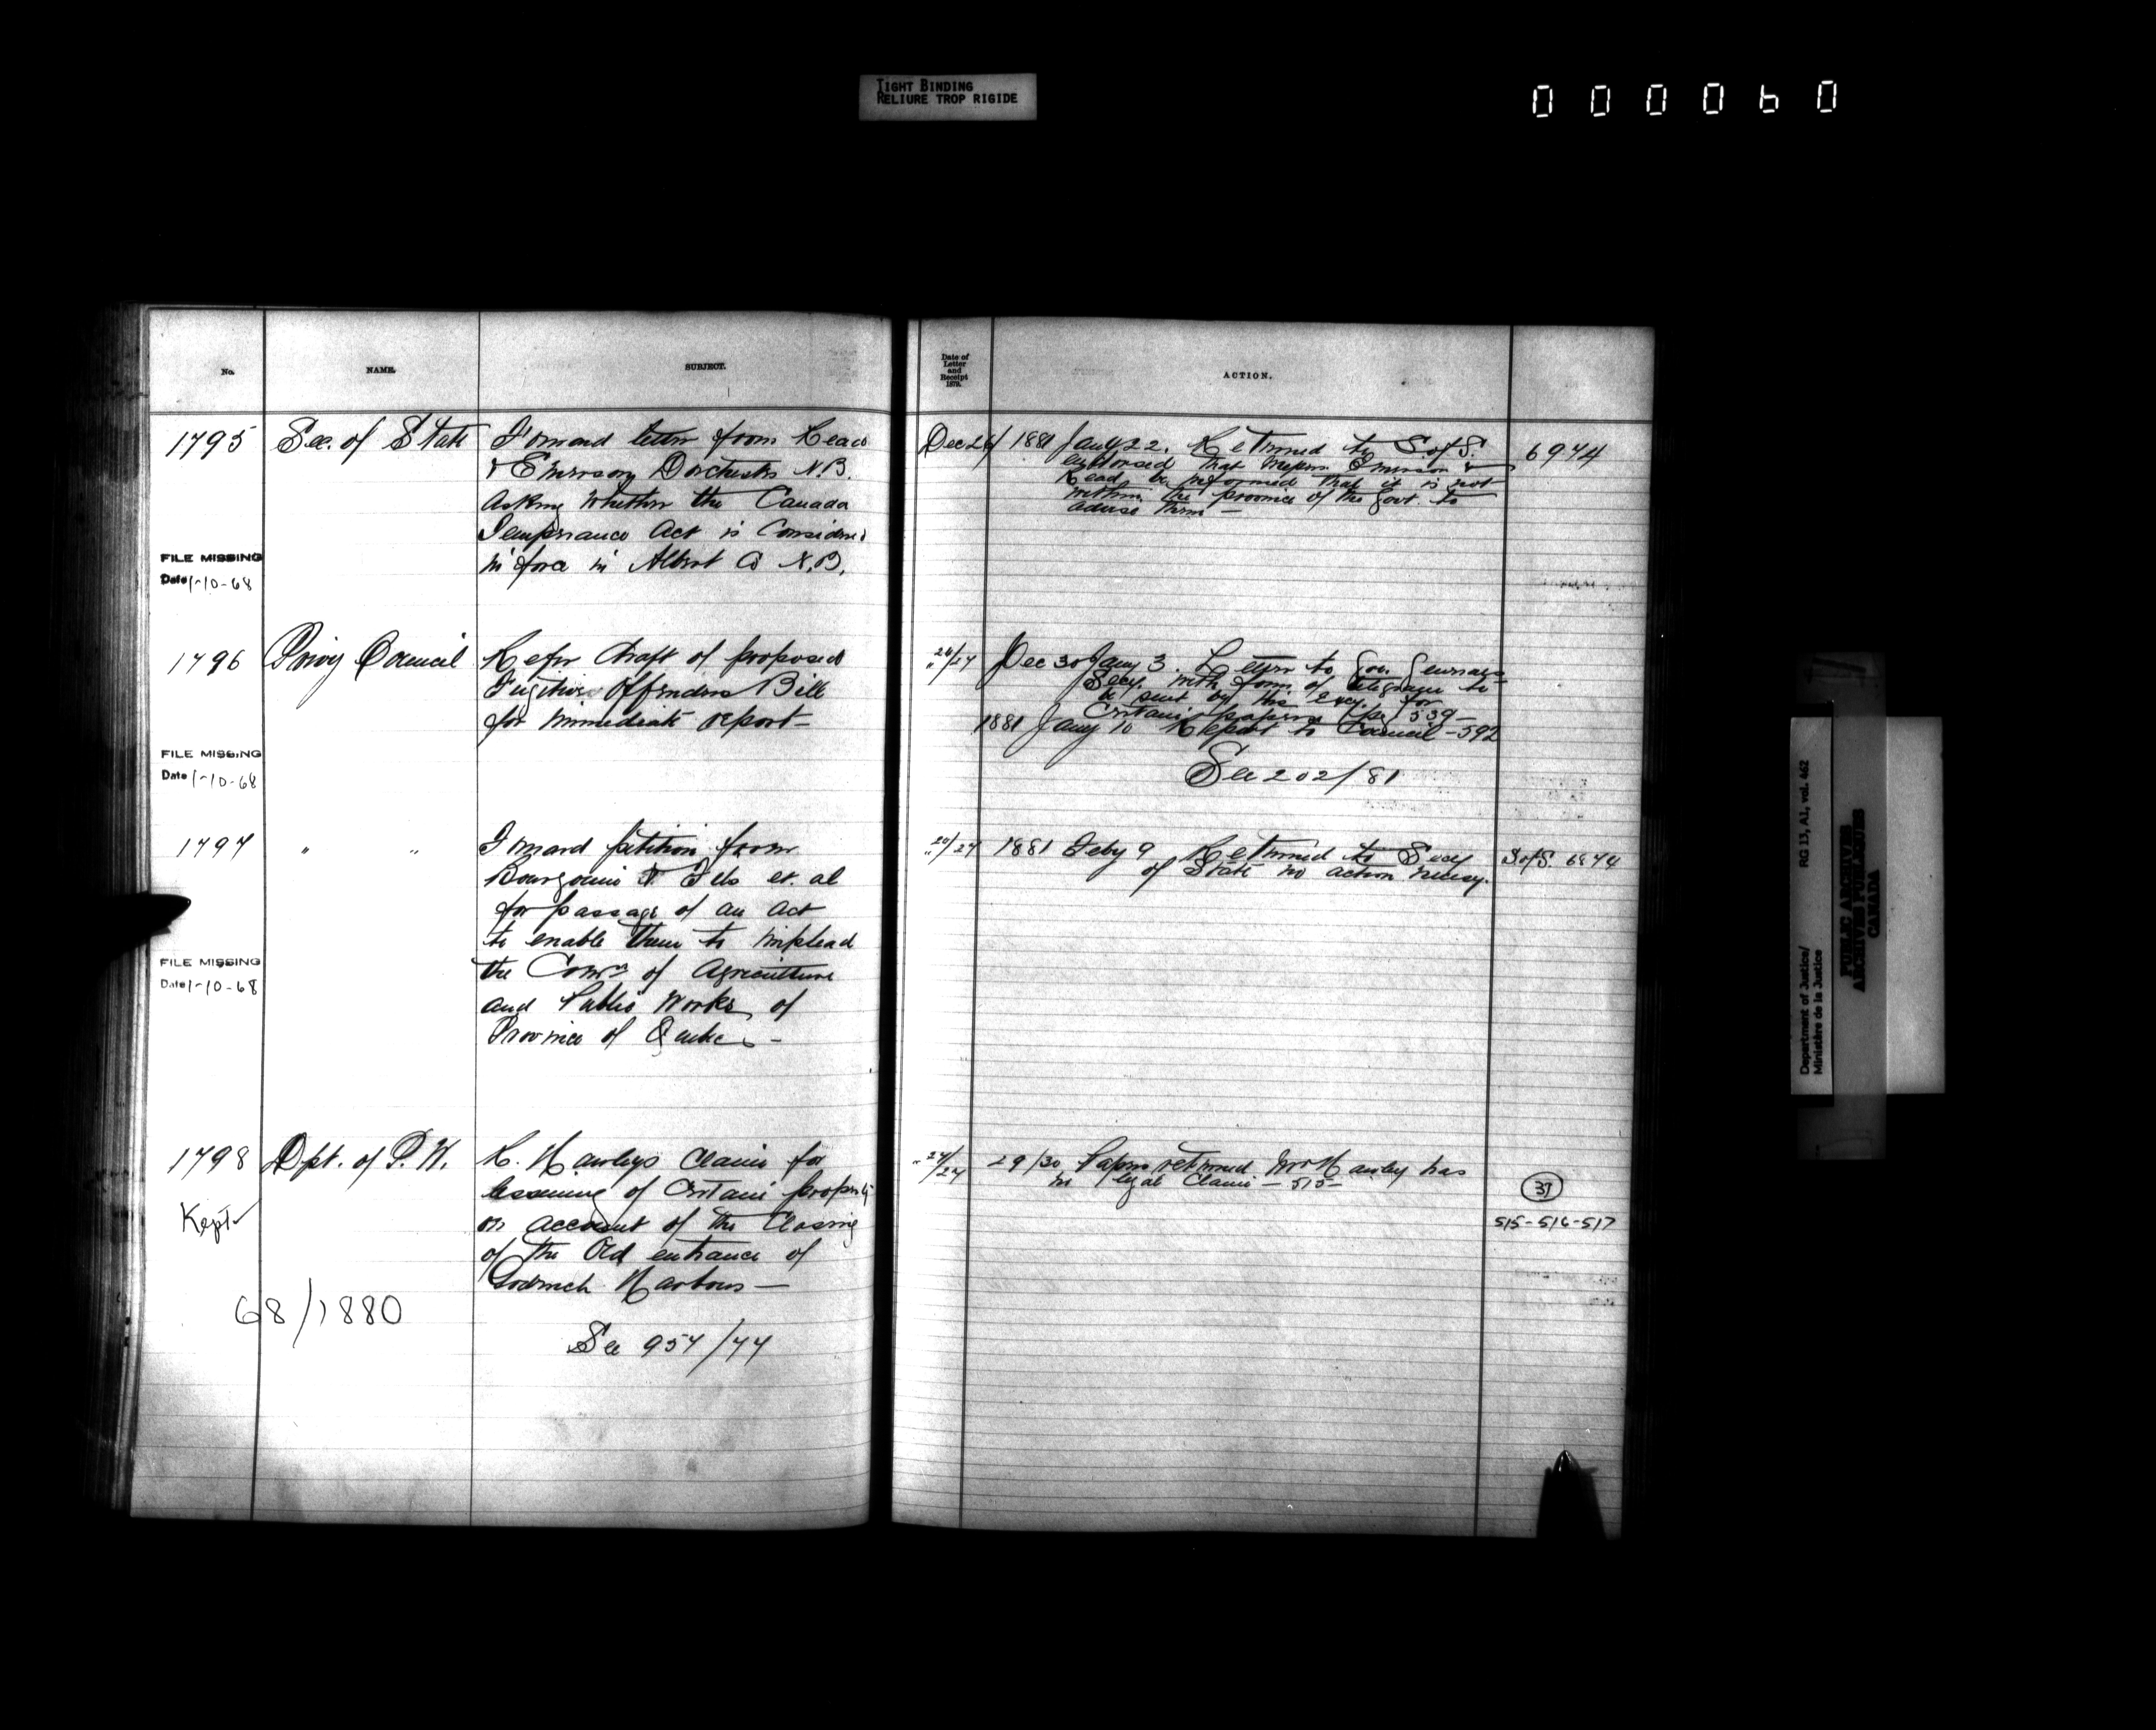 TIGHT BINDING
RELIURE TROP RIGIDE
000060
No.
NAME.
SUBJECT.
Date of
Letter
and
Receipt
1879.
ACTION.
1795
Sec. of State
Forward letter from Read
& Emerson Dorchester N.B.
asking whether the Canada
Temperance Act is considered
in force in Albert Co N.B.
FILE MISSING
Date 1-10-68
Dec 24/ 1881 Jany 22. Returned to S of S.
endorsed that Messrs Emerson &
Read be informed that it is not
within the province of the Govt. to
advise them —
6974
1796
Privy Council
Refer draft of proposed
Fugitive Offenders Bill
for immediate report —
FILE MISSING
Date 1-10-68
" 24/27 Dec 30 Jany 3. Letter to Gov. Generals
Secy. with form of telegram to
be sent by His Excy. for
Certain papers 539 —
1881 Jany 10 Report to Council — 592
See 202/81
1797
" "
Forward petition from
Bourgouin & Fils et. al
for passage of an act
to enable them to implead
the Comr of Agriculture
and Public Works of
Province of Quebec —
FILE MISSING
Date 1-10-68
" 20/27 1881 Feby 9 Returned to Secy
of State no action necesy.
S of S. 6874
1798
Dpt. of P. W.
R. Hawleys claim for
lessening of Certain property
on account of the closing
of the Old entrance of
Goderich Harbour —
Kept
68/1880
See 957/77
" 27/27 29/30 Papers returned Mr Hawley has
no legal claim — 515 —
37
515-516-517
Department of Justice/
Ministère de la Justice
RG 13, A1, vol. 462
PUBLIC ARCHIVES
ARCHIVES PUBLIQUES
CANADA